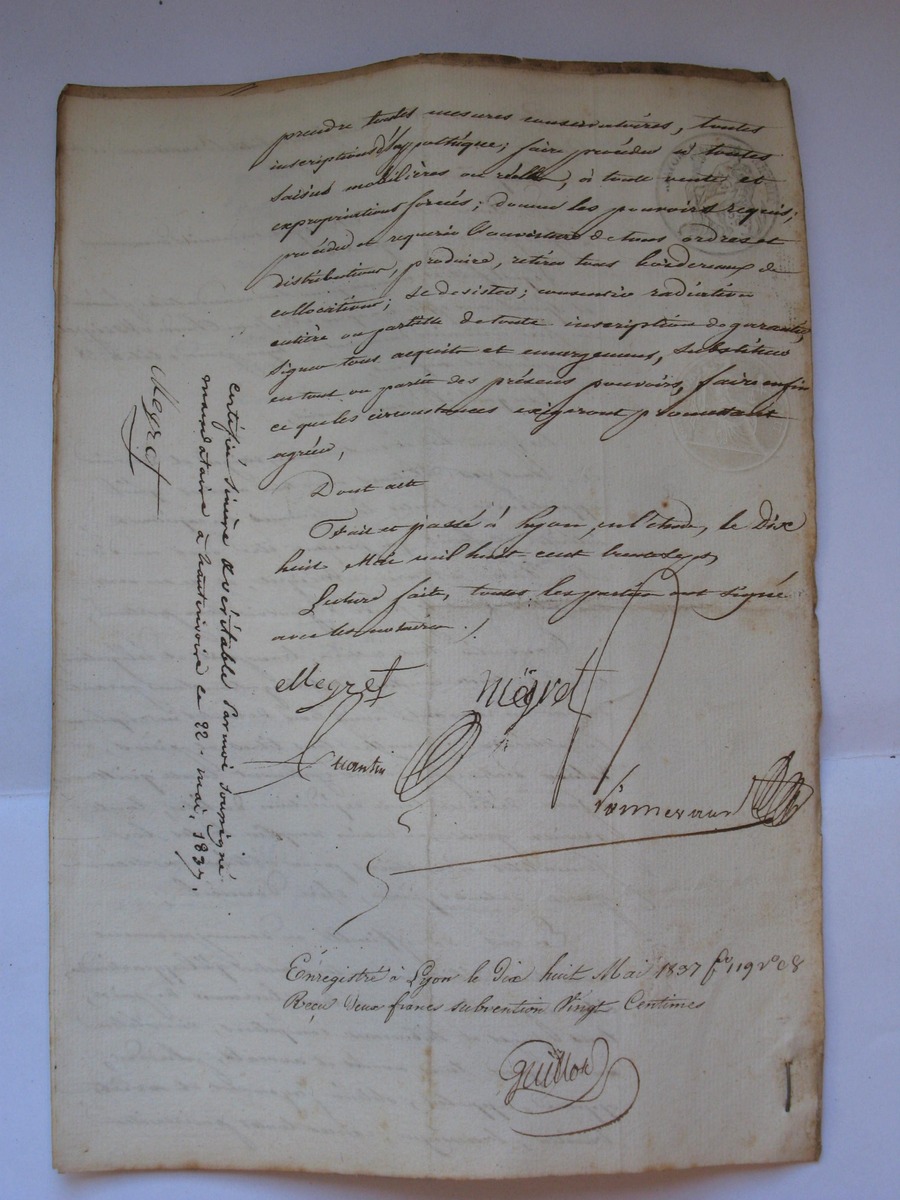 prendre toutes mesures conservatoires, toutes
inscriptions d'hypothèque; faire procéder à toutes
saisies mobilières ou réelles, à toute vente et
expropriations forcées; donner les pouvoirs requis;
procéder et requérir l'ouverture de tous ordres et
distributions, produire, retirer tous bordereaux de
collocations; se desister; consentir radiation
entière ou partielle de toute inscription de garantie,
signer tous acquits et emargemens, substituer
en tout ou partie des présens pouvoirs, faire enfin
ce que les circonstances exigeront promettant
agréer,
Dont acte
Fait et passé à Lyon, en l'étude, le Dix
huit Mai mil huit cent trente sept
Lecture faite, toutes les parties ont signé
avec les notaires.
Megret
Megret
Quantin
Enregistré à Lyon le Dix huit Mai 1837 f° 119 v° c 8
Reçu Deux francs subvention Vingt Centimes
Guillot
certifié sincère & véritable par moi soussigné
mandataire à hauterivoire ce 22 mai, 1837.
Megret